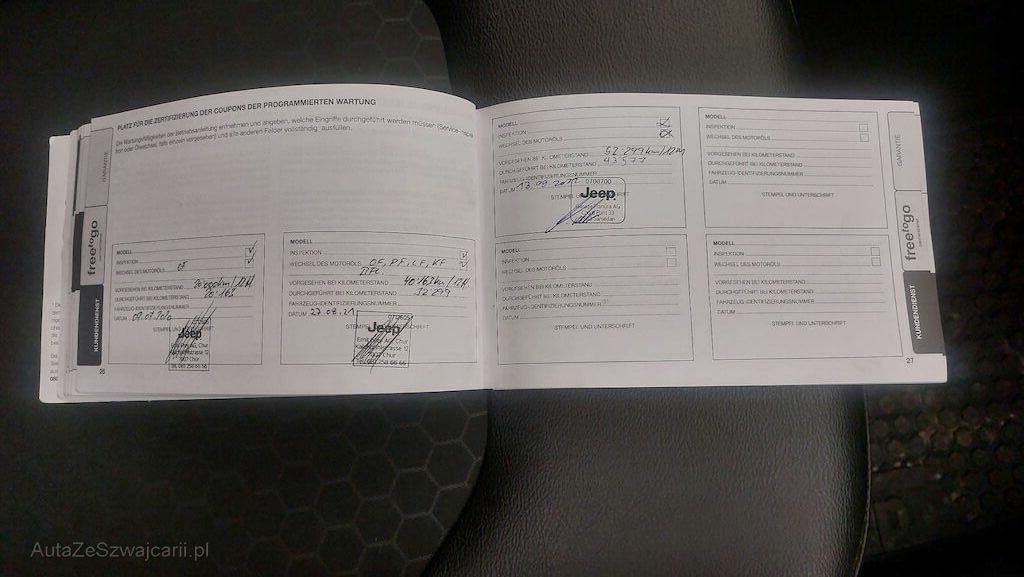 PLATZ FÜR DIE ZERTIFIZIERUNG DER COUPONS DER PROGRAMMIERTEN WARTUNG
Die Wartungsfälligkeiten der Betriebsanleitung entnehmen und angeben, welche Eingriffe durchgeführt werden müssen (Service-Inspek
tion oder Ölwechsel, falls einzeln vorgesehen) und alle anderen Felder vollständig ausfüllen.
MODELL
INSPEKTION
WECHSEL DES MOTORÖLS OF
VORGESEHEN BEI KILOMETERSTAND
DURCHGEFÜHRT BEI KILOMETERSTAND 20'163
FAHRZEUG-IDENTIFIZIERUNGSNUMMER
DATUM
STEMPEL UND
Jeep
7007 Chur
Tel. 081 258 66 66
26
MODELL
INSPEKTION
WECHSEL DES MOTORÖLS OF, PF, LF, KF
VORGESEHEN BEI KILOMETERSTAND 40'163 km / 12M
DURCHGEFÜHRT BEI KILOMETERSTAND 32'299
FAHRZEUG-IDENTIFIZIERUNGSNUMMER
DATUM 27.08.21
Jeep
7007 Chur
Tel. 081 258 66 66
MODELL
INSPEKTION
WECHSEL DES MOTORÖLS
VORGESEHEN BEI KILOMETERSTAND 52'299 km/12M
DURCHGEFÜHRT BEI KILOMETERSTAND 43577
FAHRZEUG-IDENTIFIZIERUNGSNUMMER
DATUM 13.09.2022
0700700
Jeep
MODELL
INSPEKTION
WECHSEL DES MOTORÖLS
VORGESEHEN BEI KILOMETERSTAND
DURCHGEFÜHRT BEI KILOMETERSTAND
FAHRZEUG-IDENTIFIZIERUNGSNUMMER
DATUM
STEMPEL UND UNTERSCHRIFT
MODELL
INSPEKTION
WECHSEL DES MOTORÖLS
VORGESEHEN BEI KILOMETERSTAND
DURCHGEFÜHRT BEI KILOMETERSTAND
FAHRZEUG-IDENTIFIZIERUNGSNUMMER
DATUM
STEMPEL UND UNTERSCHRIFT
MODELL
INSPEKTION
WECHSEL DES MOTORÖLS
VORGESEHEN BEI KILOMETERSTAND
DURCHGEFÜHRT BEI KILOMETERSTAND
FAHRZEUG-IDENTIFIZIERUNGSNUMMER
DATUM
STEMPEL UND UNTERSCHRIFT
27
GARANTIE
freetogo
KUNDENDIENST
GARANTIE
freetogo
KUNDENDIENST
AutaZeSzwajcarii.pl